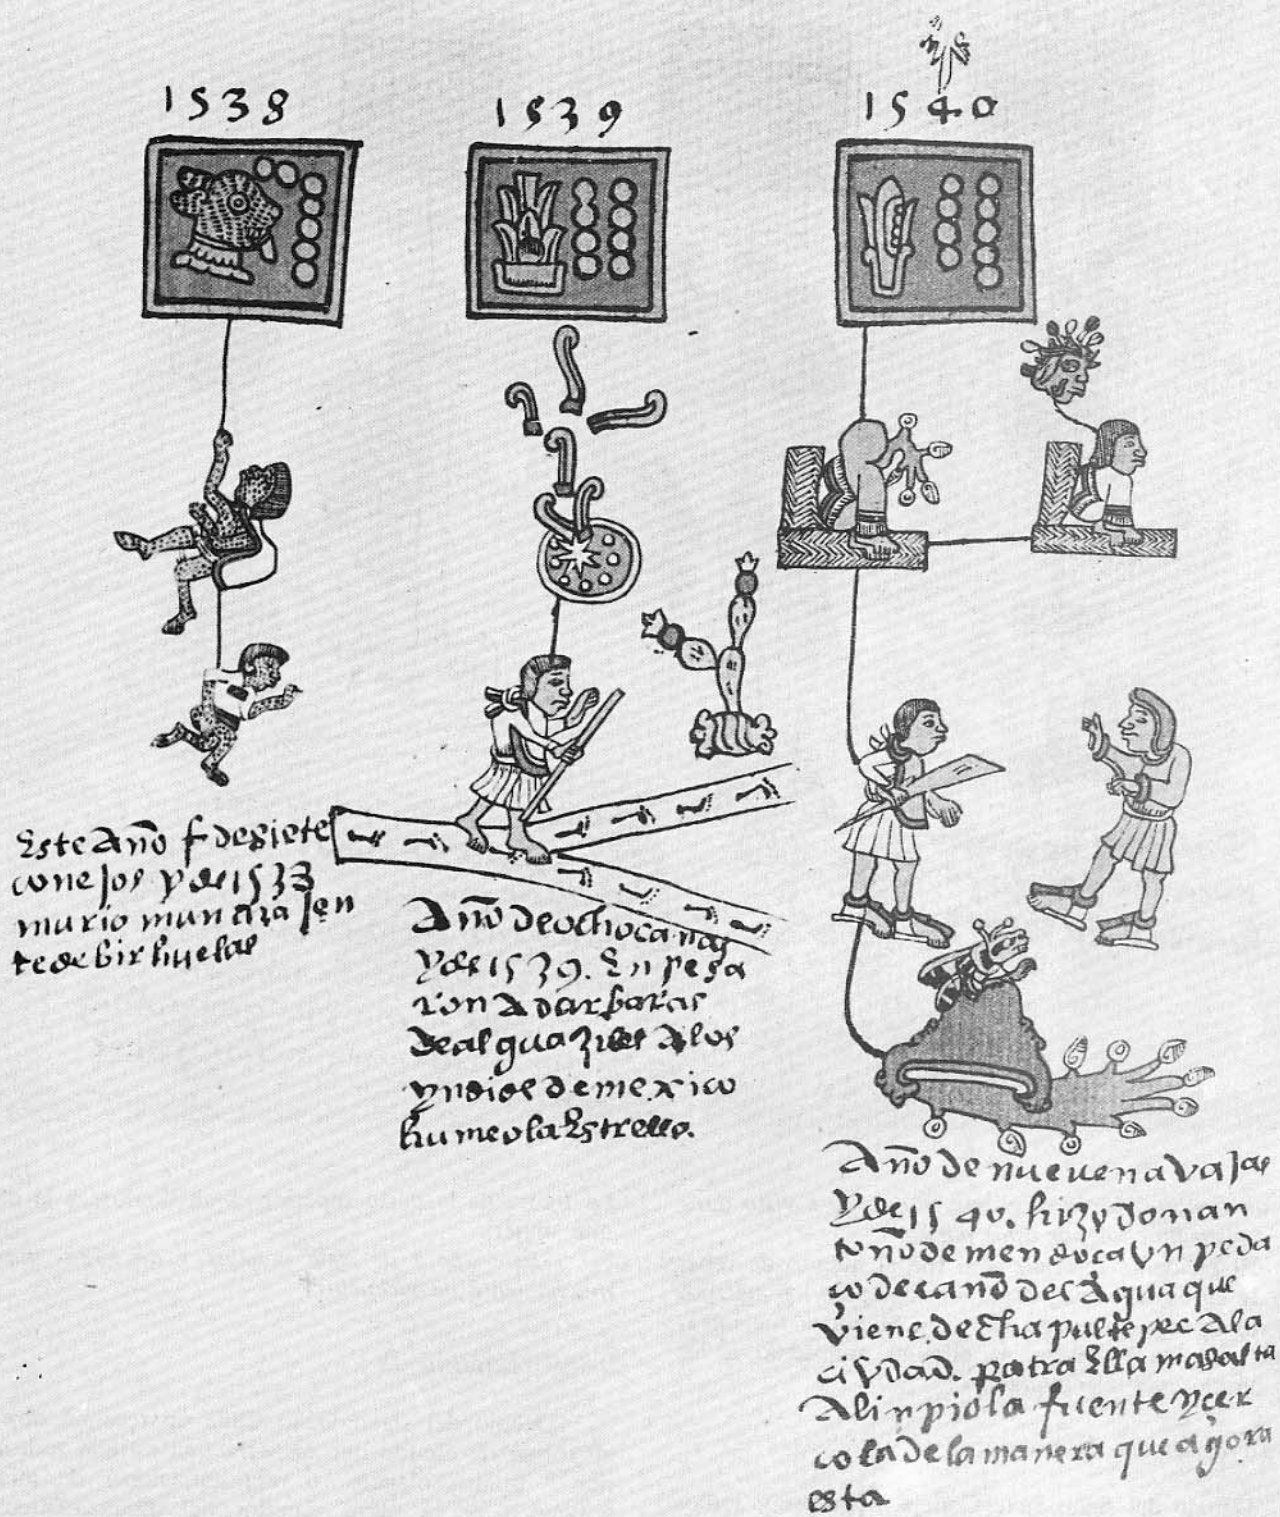 1538
1539
1540
Este Año f de siete
conejos y de 1538
murio muncha jen
te de birhuelas
Año de ocho cañas
y de 1539. En pesa
ron A dar baras
de alguaziles A los
yndios de mexico
humeo la Estrella.
Año de nueve navajas
y de 1540. hizo don an
toño de mendoca un peda
co de caño del Agua que
viene de Chapultepec A la
ciudad. traella mas alta
A linpio la fuente y cer
cola de la manera que agora
esta